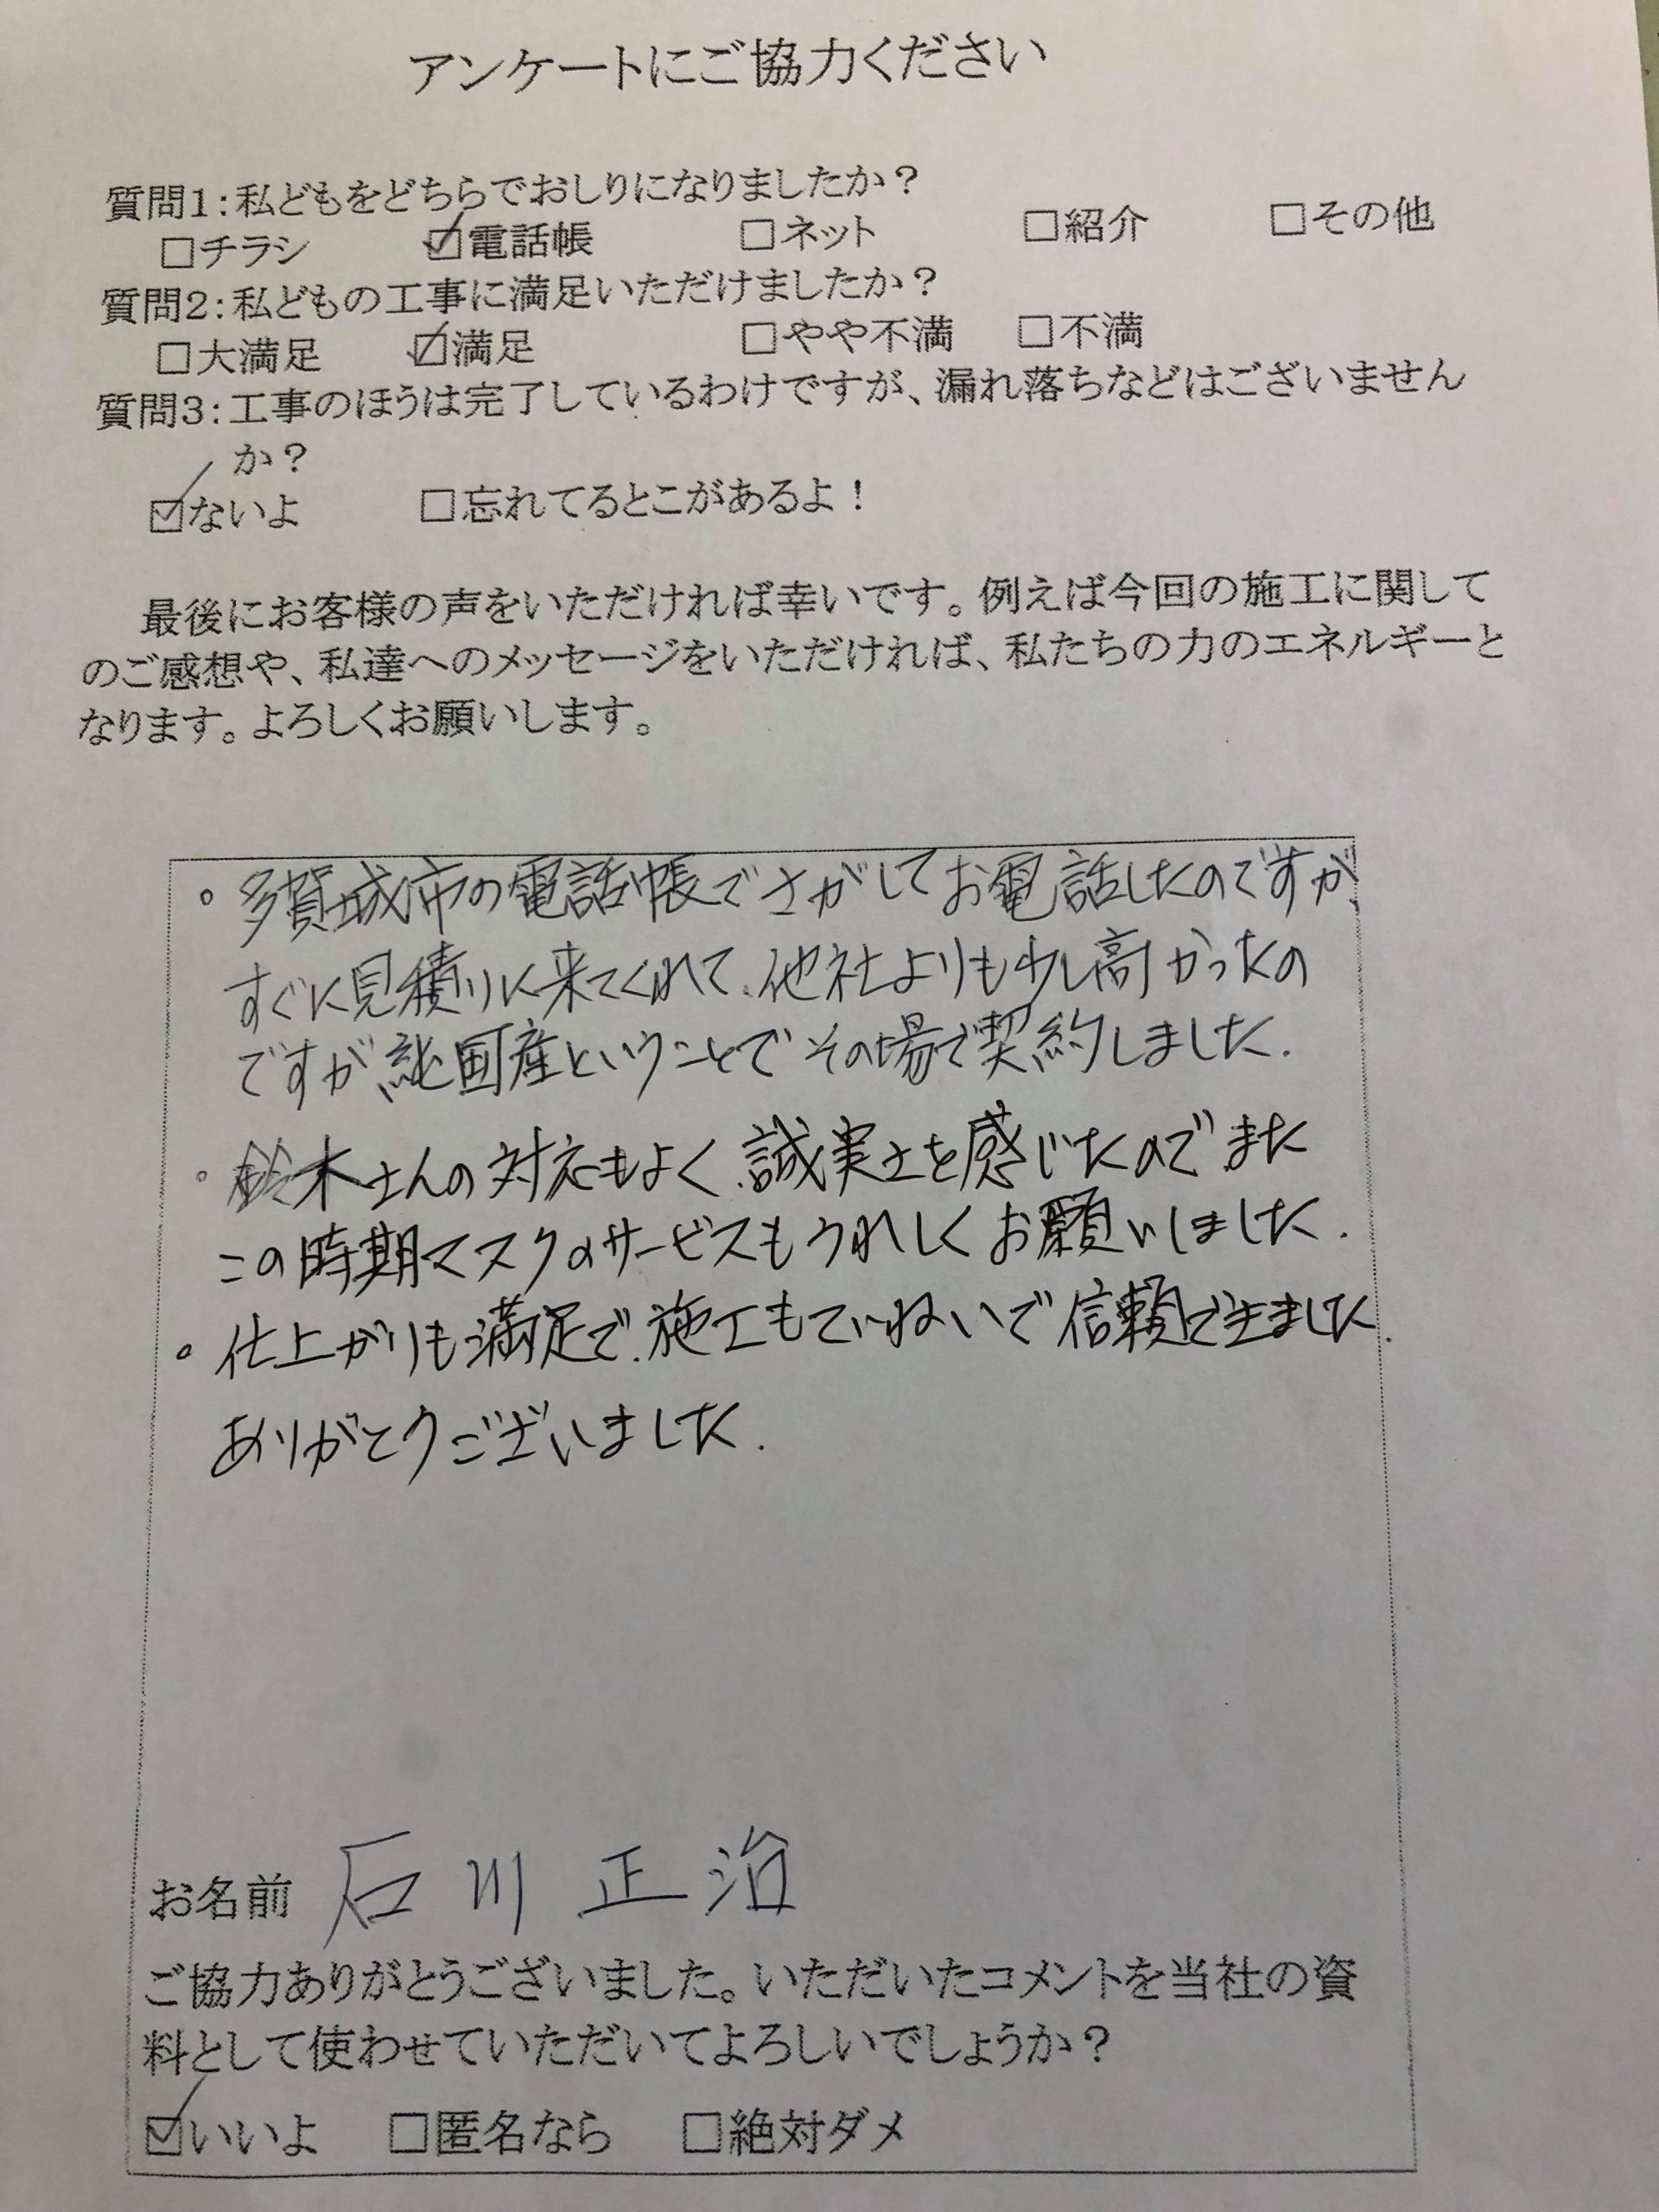 アンケートにご協力ください
質問1：私どもをどちらでおしりになりましたか？
□チラシ ☑電話帳 □ネット □紹介 □その他
質問2：私どもの工事に満足いただけましたか？
□大満足 ☑満足 □やや不満 □不満
質問3：工事のほうは完了しているわけですが、漏れ落ちなどはございません
か？
☑ないよ □忘れてるとこがあるよ！
最後にお客様の声をいただければ幸いです。例えば今回の施工に関して
のご感想や、私達へのメッセージをいただければ、私たちの力のエネルギーと
なります。よろしくお願いします。
。多賀城市の電話帳でさがしてお電話したのですが、
すぐに見積りに来てくれて、他社よりも少し高かったの
ですが、純国産ということでその場で契約しました。
。鈴木さんの対応もよく、誠実さを感じたのでまた
この時期マスクのサービスもうれしくお願いしました。
。仕上がりも満足で、施工もていねいで信頼できました。
ありがとうございました。
お名前 石川 正治
ご協力ありがとうございました。いただいたコメントを当社の資
料として使わせていただいてよろしいでしょうか？
☑いいよ □匿名なら □絶対ダメ